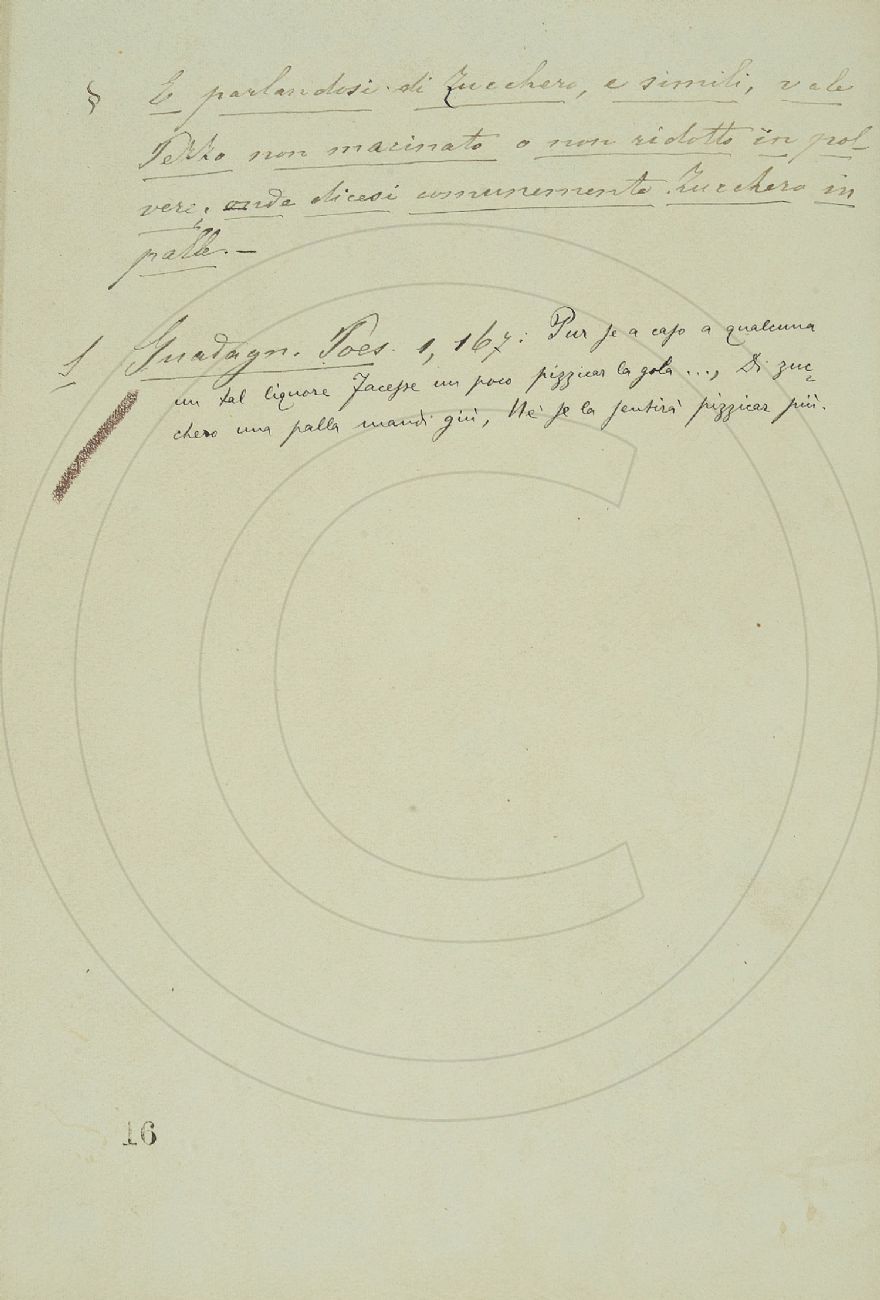 § E parlandosi di Zucchero, e simili, vale
Pezzo non macinato o non ridotto in pol-
vere; onde dicesi comunemente Zucchero in
palle.—
S Guadagn. Poes. 1, 167: Pur se a caso a qualcuna
un tal liquore Facesse un poco pizzicar la gola ..., Di zuc=
chero una palla mandi giù, Nè se la sentirà pizzicar più.
16